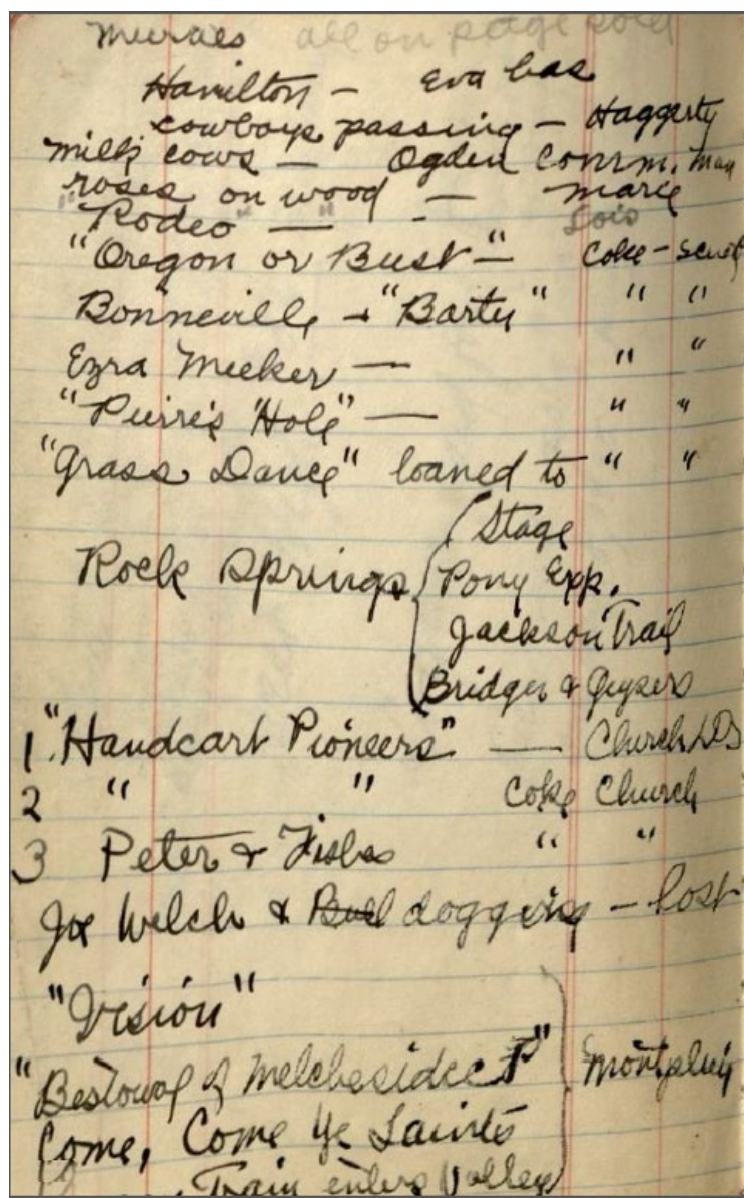 Murals all on page sold
Hamilton - Eva has
cowboys passing - Haggerty
milk cows - Ogden Comm. Man
roses on wood - Marie
"Rodeo" - Lois
"Oregon or Bust" - Coke -
Bonneville - "Party" " "
Ezra Meeker - " "
"Pierre's Hole" - " "
"Grass Dance" loaned to " "
Stage
Rock Springs { Pony Exp.
Jackson Trail
Bridger & Geysers
1 "Handcart Pioneers" - Church LDS
2 " " Coke Church
3 Peter & Fishes " "
Joe Welch & Bull dogging - lost
"Vision"
"Bestowal of Melchesidec P" Montpelier
Come, Come Ye Saints
Train enters Valley